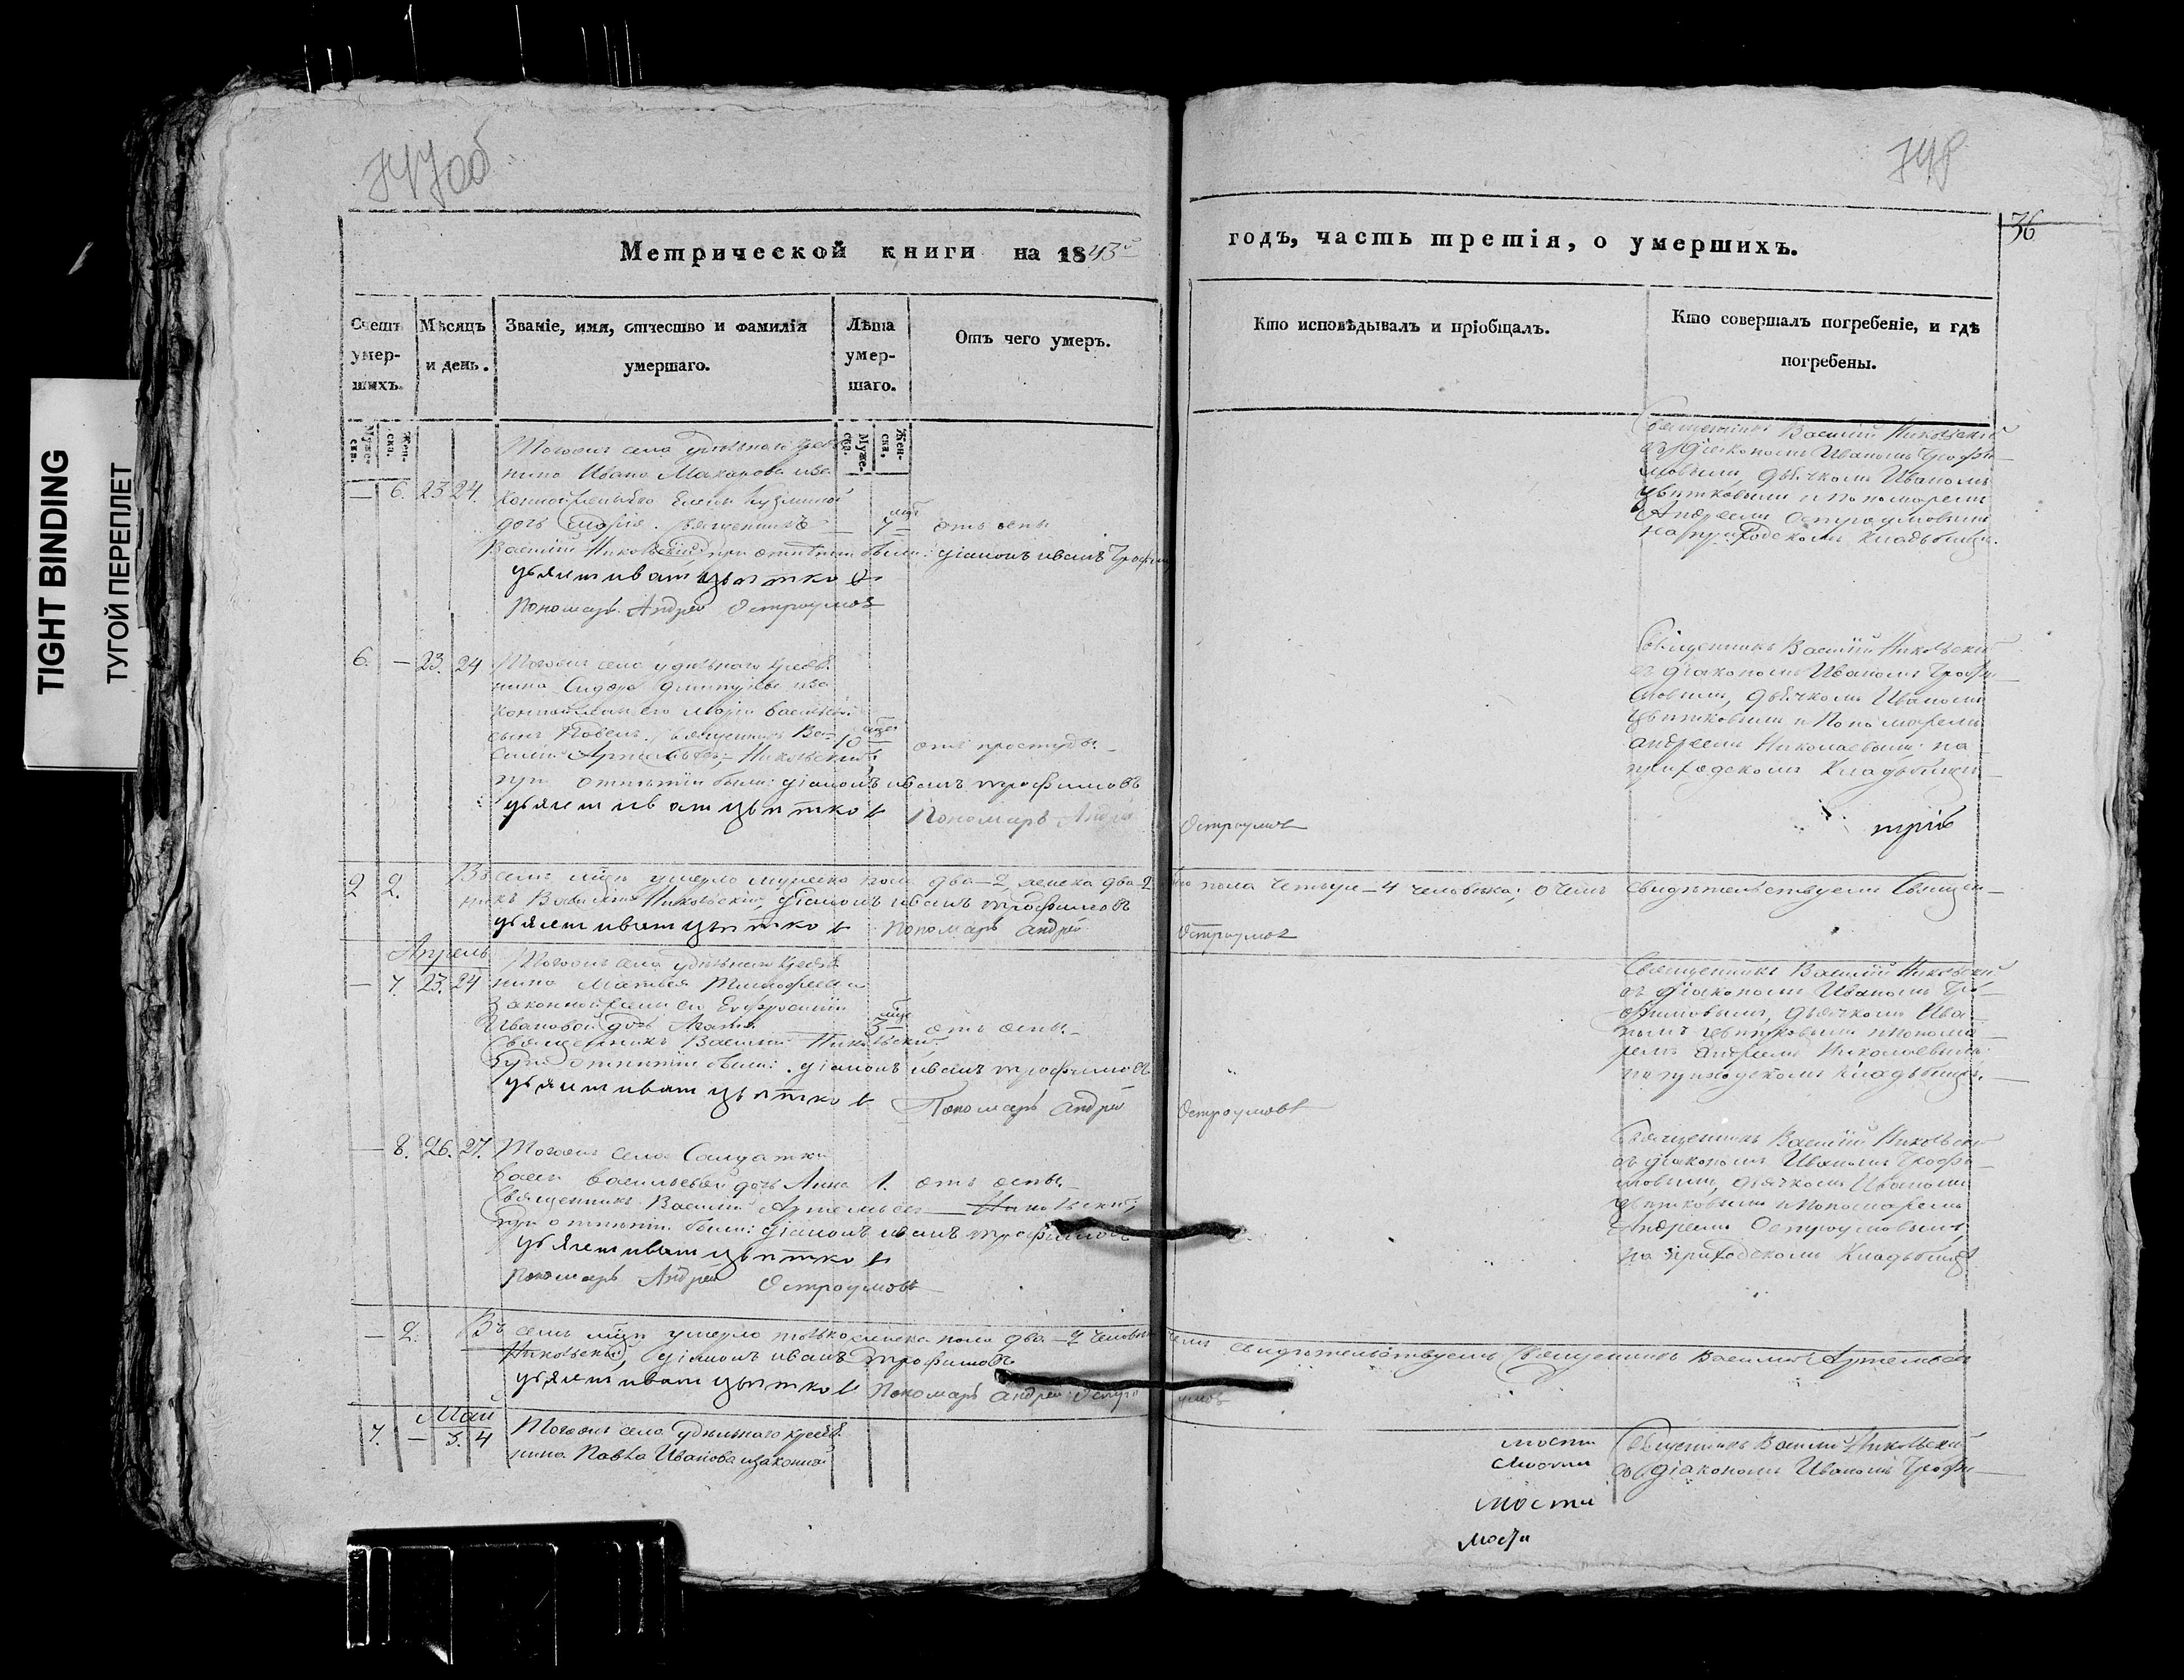 TIGHT BINDING
ТУГОЙ ПЕРЕПЛЕТ
747об
748
36
Метрической книги на 1843й
годъ, часть третія, о умершихъ.
Счетъ умер-шихъ.
Мѣсяцъ и день.
Званіе, имя, отчество и фамилія умершаго.
Лѣта умер-шаго.
Отъ чего умеръ.
Кто исповѣдывалъ и пріобщалъ.
Кто совершалъ погребеніе, и гдѣ погребены.
Муже-ска.
Жен-ска.
Муже-ска.
Жен-ска.
Тогожъ села удѣльнаго крестья
нина Ивана Макарова и за
— 6. 23 24. конной жены его Елены Кузминой
дочь Марія. Священникъ 7 отъ оспы
Василій Никольскій при отпѣтіи были: діаконъ иванъ Трофим
дьячекъ иванъ цвѣтковъ
Пономарь Андрей Остроумовъ
Священникъ Василій Никольскій
съ діакономъ Иваномъ Трофи
мовымъ, дьячкомъ Иваномъ
Цвѣтковымъ и пономаремъ
Андреемъ Остроумовымъ
на приходскомъ кладбищѣ.
6. — 23. 24 Тогожъ села удѣльнаго крестья
нина Сидора Дмитріева и за
конной жены его Маріи Васильевой
сынъ Павелъ. Священникъ Ва- 10 отъ простуды.
силій Артемьевъ Никольскій
при отпѣтіи были: діаконъ иванъ трофимовъ
дьячекъ иванъ цвѣтковъ Пономарь Андрей Остроумовъ
Священникъ Василій Никольскій
съ діакономъ Иваномъ Трофи
мовымъ, дьячкомъ Иваномъ
Цвѣтковымъ и Пономаремъ
андреемъ Николаевымъ на
приходскомъ кладбищѣ
2 2. Въ семъ м-цѣ умерло мужеска пола два—2, женска два—2 пола четыре—4 человѣка; о чемъ свидѣтельствуемъ Священ
никъ Василій Никольскій, діаконъ иванъ трофимовъ
дьячекъ иванъ цвѣтковъ Пономарь андрей Остроумовъ
Апрель
Тогожъ села удѣльнаго крестья
— 7. 23. 24 нина Матвея Тимофеева и
законной жены его Евфросиніи
Ивановой дочь Агафья 3 отъ оспы.
Священникъ Василій Никольскій,
При отпѣтіи были: діаконъ иванъ трофимовъ
дьячекъ иванъ цвѣтковъ Пономарь андрей Остроумовъ
Священникъ Василій Никольскій
съ діакономъ Иваномъ Тро
фимовымъ, дьячкомъ Ива
номъ Цвѣтковымъ и понома
ремъ Андреемъ Николаевымъ
на приходскомъ кладбищѣ.
— 8. 26. 27. Тогожъ села Солдатки
Васильевой дочь Анна 1. отъ оспы.
Священникъ Василій Артемьевъ Никольскій;
При отпѣтіи были: діаконъ иванъ трофимовъ
дьячекъ иванъ цвѣтковъ
Пономарь Андрей Остроумовъ
Священникъ Василій Никольскій
съ діакономъ Иваномъ Трофи
мовымъ, дьячкомъ Иваномъ
Цвѣтковымъ и Пономаремъ
Андреемъ Остроумовымъ,
на приходскомъ кладбищѣ
— 2. Въ семъ м-цѣ умерло только женска пола два—2 человѣка чемъ свидѣтельствуемъ Священникъ Василій Артемьевъ
Никольскій, діаконъ иванъ трофимовъ
дьячекъ иванъ цвѣтковъ Пономарь андрей Остроумовъ
Май
7. — 3. 4 Тогожъ села удѣльнаго крестья
нина Павла Иванова и законной
Священникъ Василій Никольскій
съ діакономъ Иваномъ Трофи
мости